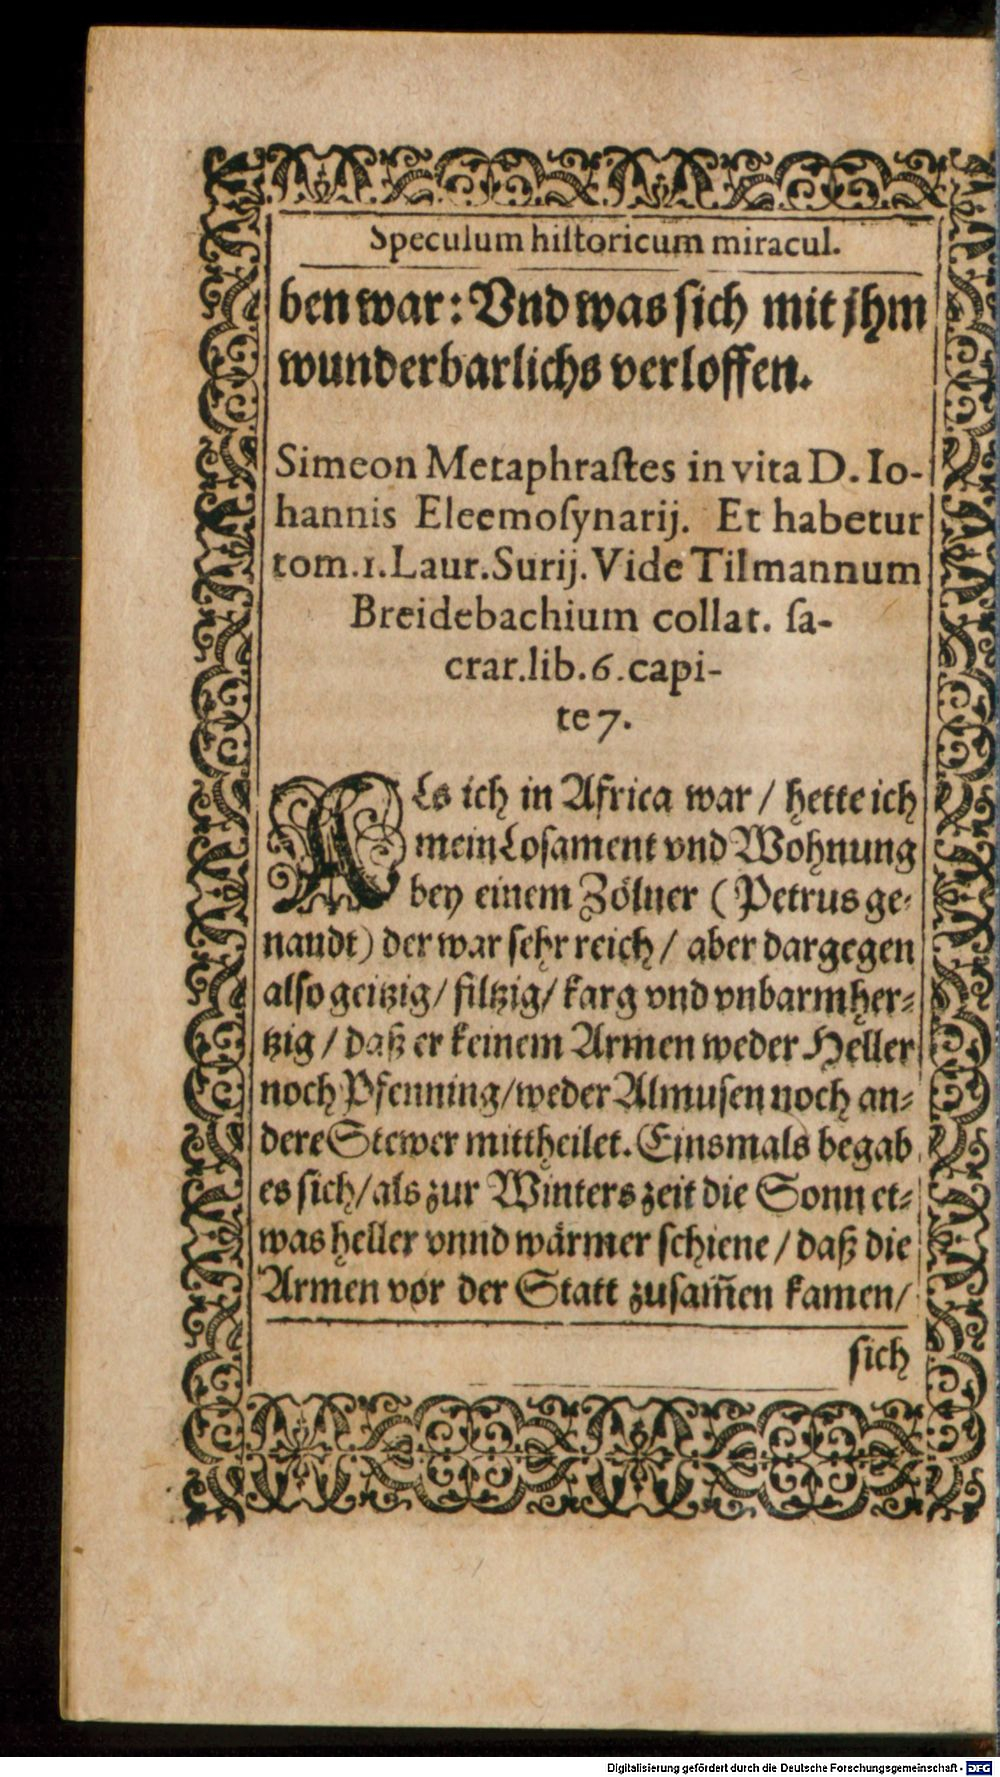 Speculum historicum miracul.
ben war: Vnd was sich mit jhm
wunderbarlichs verloffen.
Simeon Metaphrastes in vita D. Io-
hannis Eleemosynarij. Et habetur
tom.1.Laur.Surij.Vide Tilmannum
Breidebachium collat. sa-
crar.lib.6.capi-
te 7.
ALs ich in Africa war / hette ich
mein Losament vnd Wohnung
bey einem Zölner ( Petrus ge-
naudt) der war sehr reich / aber dargegen
also geitzig/ filtzig/ karg vnd vnbarmher-
tzig / daß er keinem Armen weder Heller
noch Pfenning/weder Almusen noch an-
dere Stewer mittheilet. Einsmals begab
es sich/als zur Winterszeit die Sonn et-
was heller vnnd wärmer schiene / daß die
Armen vor der Statt zusam̃en kamen/
sich
Digitalisierung gefördert durch die Deutsche Forschungsgemeinschaft - DFG